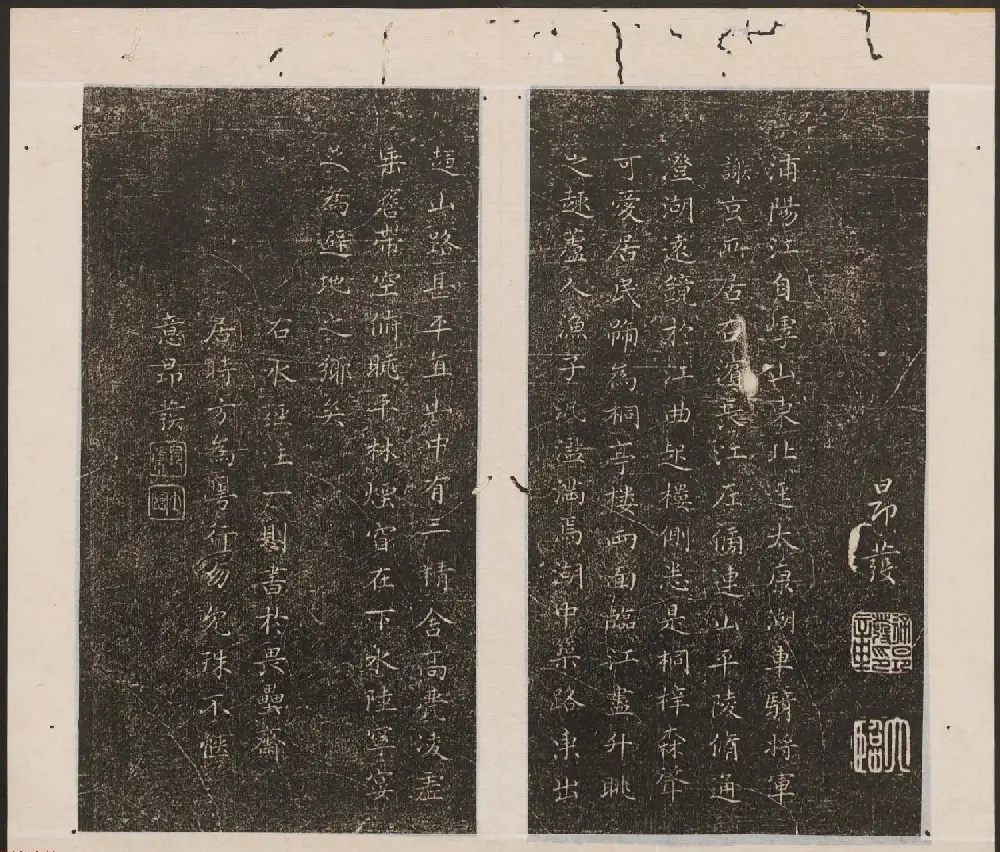 昂發
大臨
浦陽江自嶀山東北逕太康湖車騎將軍
謝玄所居右濱長江左傍連山平陵脩通
澄湖遠鏡於江曲起樓側悉是桐梓森聳
可愛居民號為桐亭樓兩面臨江盡升眺
之趣蘆人漁子汎濫滿焉湖中築路東出
趨山路甚平直山中有三精舍高甍凌虛
垂簷帶空俯眺平林煙窅在下水陸寧宴
足為避地之鄉矣
右水經注一則書於畏壘齋
居時方為粵行匆匆殊不愜
意昂發